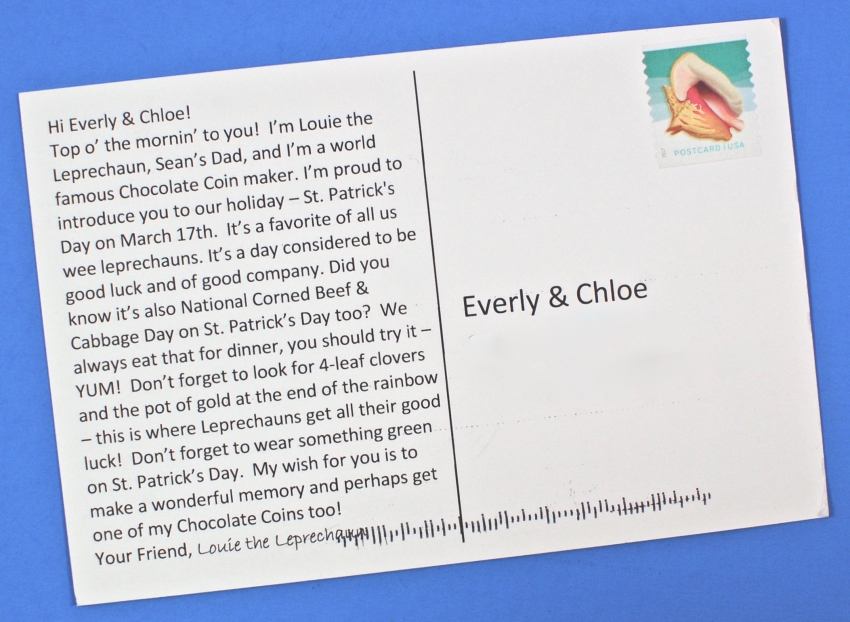 Hi Everly & Chloe!
Top o' the mornin' to you!  I'm Louie the
Leprechaun, Sean's Dad, and I'm a world
famous Chocolate Coin maker. I'm proud to
introduce you to our holiday – St. Patrick's
Day on March 17th.  It's a favorite of all us
wee leprechauns. It's a day considered to be
good luck and of good company. Did you
know it's also National Corned Beef &
Cabbage Day on St. Patrick's Day too?  We
always eat that for dinner, you should try it –
YUM!  Don't forget to look for 4-leaf clovers
and the pot of gold at the end of the rainbow
– this is where Leprechauns get all their good
luck!  Don't forget to wear something green
on St. Patrick's Day.  My wish for you is to
make a wonderful memory and perhaps get
one of my Chocolate Coins too!
Your Friend, Louie the Leprechaun
POSTCARD | USA
Everly & Chloe